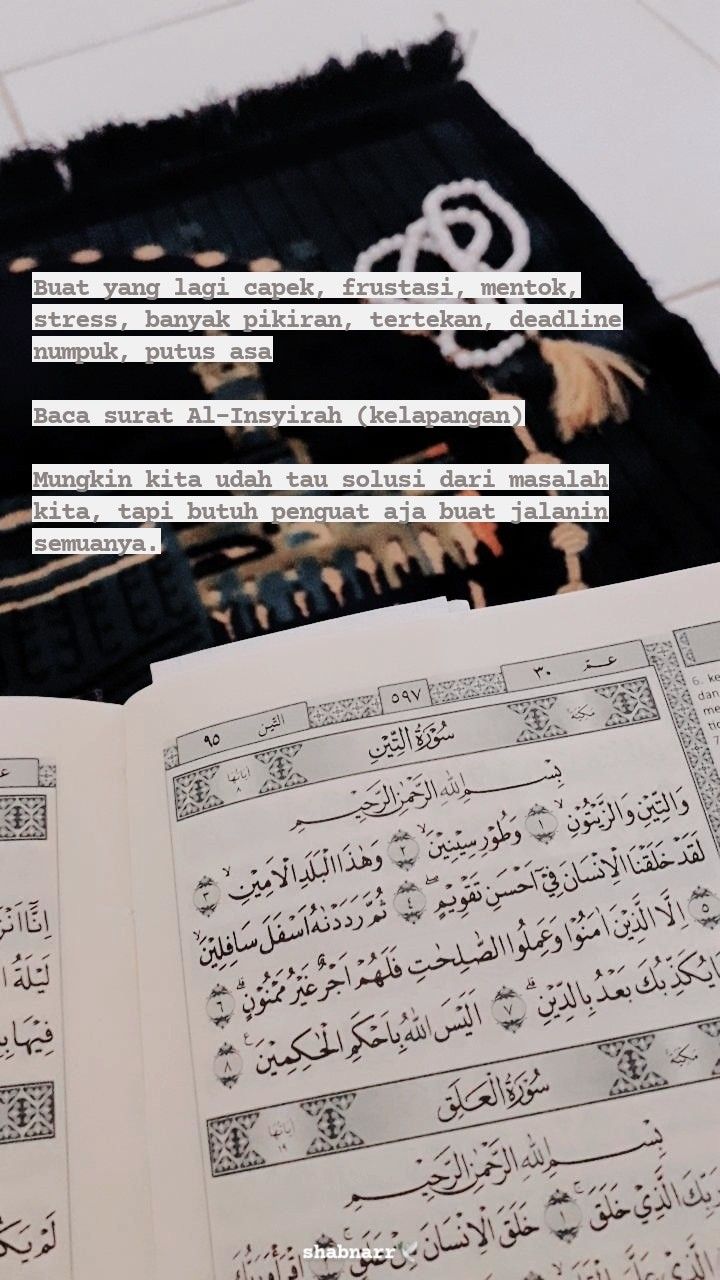 Buat yang lagi capek, frustasi, mentok,
stress, banyak pikiran, tertekan, deadline
numpuk, putus asa
Baca surat Al-Insyirah (kelapangan)
Mungkin kita udah tau solusi dari masalah
kita, tapi butuh penguat aja buat jalanin
semuanya.
عمّ ٣٠
٥٩٧
التين ٩٥
مكية
سُوْرَةُ التِّيْنِ
اٰياتها ٨
بِسْمِ اللّٰهِ الرَّحْمٰنِ الرَّحِيْمِ
وَالتِّيْنِ وَالزَّيْتُوْنِۙ ١ وَطُوْرِ سِيْنِيْنَۙ ٢ وَهٰذَا الْبَلَدِ الْاَمِيْنِۙ ٣
لَقَدْ خَلَقْنَا الْاِنْسَانَ فِيْٓ اَحْسَنِ تَقْوِيْمٍۖ ٤ ثُمَّ رَدَدْنٰهُ اَسْفَلَ سَافِلِيْنَۙ
٥ اِلَّا الَّذِيْنَ اٰمَنُوْا وَعَمِلُوا الصّٰلِحٰتِ فَلَهُمْ اَجْرٌ غَيْرُ مَمْنُوْنٍۗ ٦
يُكَذِّبُكَ بَعْدُ بِالدِّيْنِۗ ٧ اَلَيْسَ اللّٰهُ بِاَحْكَمِ الْحٰكِمِيْنَ ٨
مكية
سُوْرَةُ الْعَلَقِ
اٰياتها ١٩
بِسْمِ اللّٰهِ الرَّحْمٰنِ الرَّحِيْمِ
رَبِّكَ الَّذِيْ خَلَقَۚ ١ خَلَقَ الْاِنْسَانَ مِنْ عَلَقٍۚ
لَيْلَةُ
shabnarr